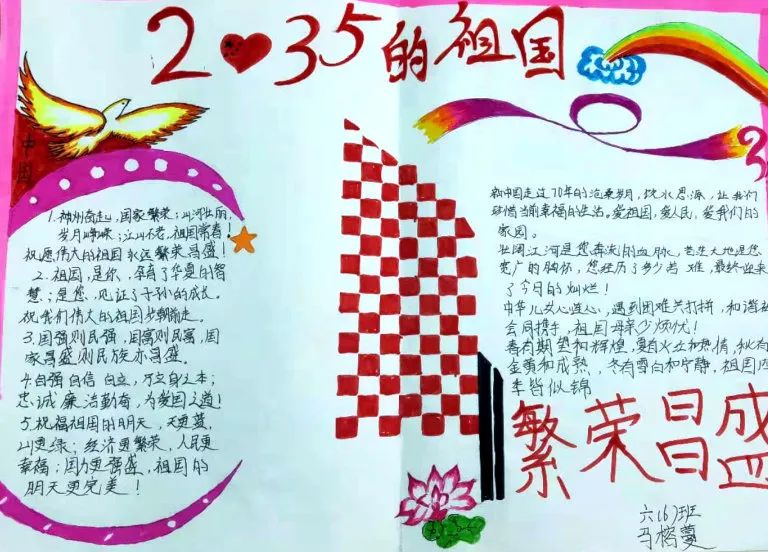 2035的祖国
中国
1.神州奋起,国家繁荣;山河壮丽,
岁月峥嵘;江山不老,祖国常春!
祝愿伟大的祖国永远繁荣昌盛!
2.祖国,是你,孕育了华夏的智
慧;是您,见证了子孙的成长。
祝我们伟大的祖国步步朝前走。
3.国强则民强,国富则民富,国
家昌盛则民族亦昌盛。
4.自强自信自立,乃立身之本;
忠诚廉洁勤奋,为爱国之道!
5.祝福祖国的明天,天更蓝,
山更绿;经济更繁荣,人民更
幸福;国力更强盛,祖国的
明天更完美!
新中国走过70年的沧桑岁月,饮水思源,让我们
珍惜当前幸福的生活。爱祖国,爱人民,爱我们的
家园。
壮阔江河是您奔流的血脉,苍茫大地是您
宽广的胸怀,您经历了多少苦难,最终迎来
了今日的灿烂!
中华儿女心连心,遇到困难共打拼,和谐社
会同携手,祖国母亲少烦忧!
春有期望和辉煌,夏有火立和热情,秋有
金黄和成熟,冬有雪白和宁静,祖国四
季皆似锦
繁荣昌盛
六(6)班
马榕蔓